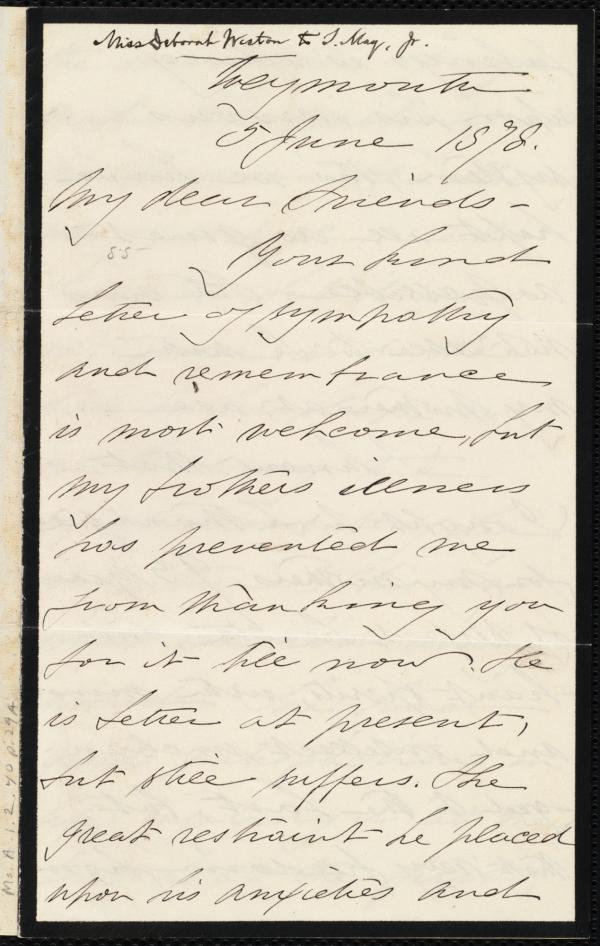 Miss Deborah Weston to S. May, Jr.
Weymouth
5 June 1878.
My dear Friends -
55
Your kind
letter of sympathy
and remembrance
is most welcome, but
my brothers illness
has prevented me
from thanking you
for it till now. He
is better at present,
but still suffers. The
great restraint he placed
upon his anxieties and
Ms. A. 1. 2. 40 p. 29A